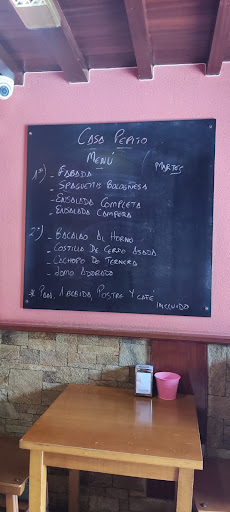 Casa Pepito
Menú
(Martes
1º) - Fabada
- Spaguetti Bolognesa
- Ensalada Completa
- Ensalada Campera
2º) - Bacalao Al Horno
- Costilla De Cerdo Asada
- Cachopo De Ternera
- Lomo Adobado
* Pan, 1 Bebida Postre Y Café
incluido